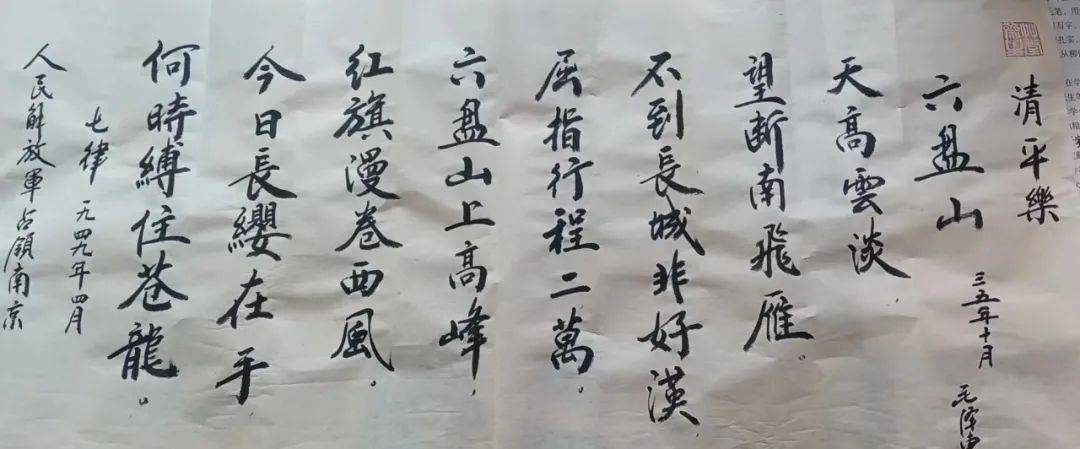 清平樂
六盘山
三五年十月
毛泽东
天高雲淡，
望断南飛雁。
不到長城非好漢，
屈指行程二萬。
六盘山上高峰，
红旗漫卷西風。
今日長纓在手，
何時縛住苍龍。
七律 一九四九年四月
人民解放軍占領南京